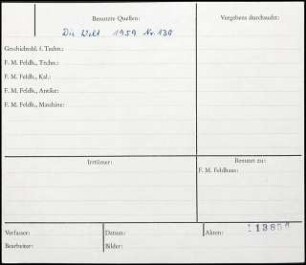 Benutzte Quellen:
Vergebens durchsucht:
Die Welt 1959 Nr. 130
Geschichtsbl. f. Techn.:
F. M. Feldh., Techn.:
F. M. Feldh., Kal.:
F. M. Feldh., Antike:
F. M. Feldh., Maschine:
Irrtümer:
Benutzt zu:
F. M. Feldhaus:
Verfasser:
Datum:
Akten:
Bearbeiter:
Bilder: